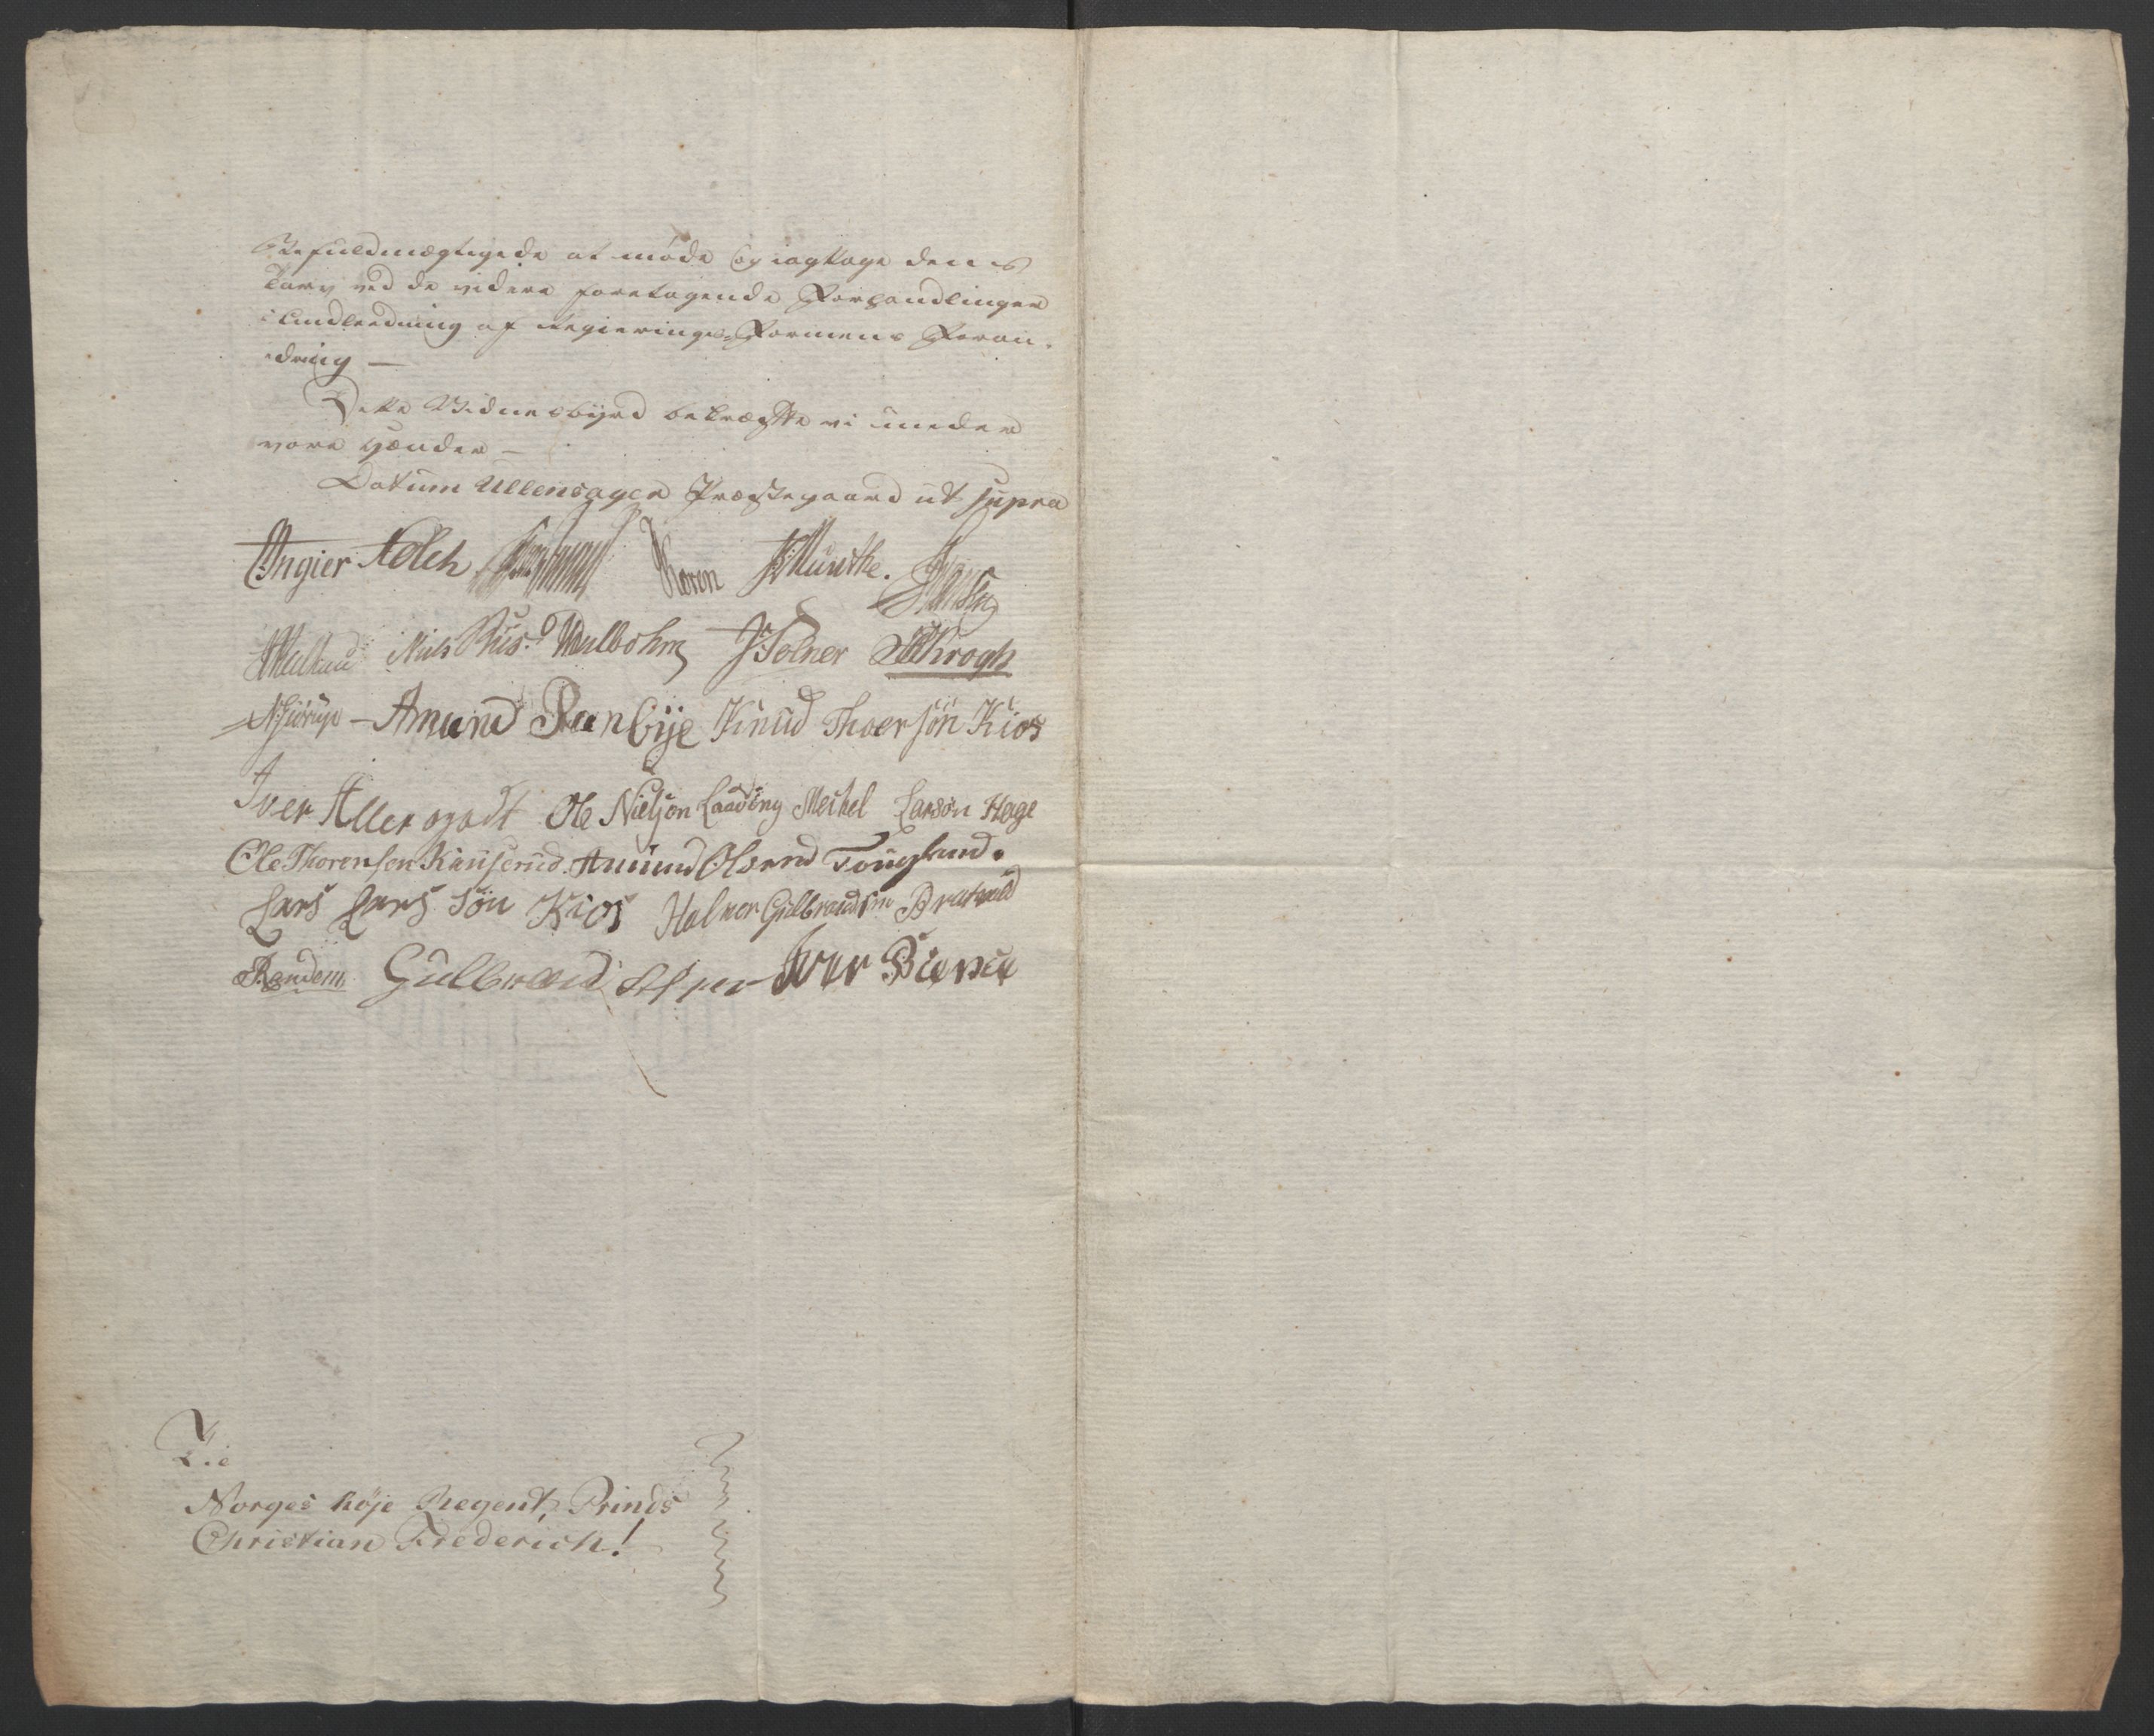 Befuldmægtigede at møde og iagttage dens
Tarv ved de videre foretagende Forhandlinger
i Andledning af Regierings-Formens Foran-
dring —
Dette Vidnesbyrd bekræfte vi under
vore Hænder —
Datum Ullensager Præstegaard ut supra
Angier Koren J Münthe.
Niels Rus. Wulbohm J: Tolner Krogh
Amund Ranbye Knud Thoersön Kios
Iver Allergodt Ole Nielsøn Laading Meikel Larsøn Hage
Ole Thorensen Kauserud. Amund Olsend Fougland.
Lars Lars Søn Kios Halvor Gulbrandsen
Randem. Gulbrand Iver
Til
Norges høje Regent, Prinds
Christian Frederich!